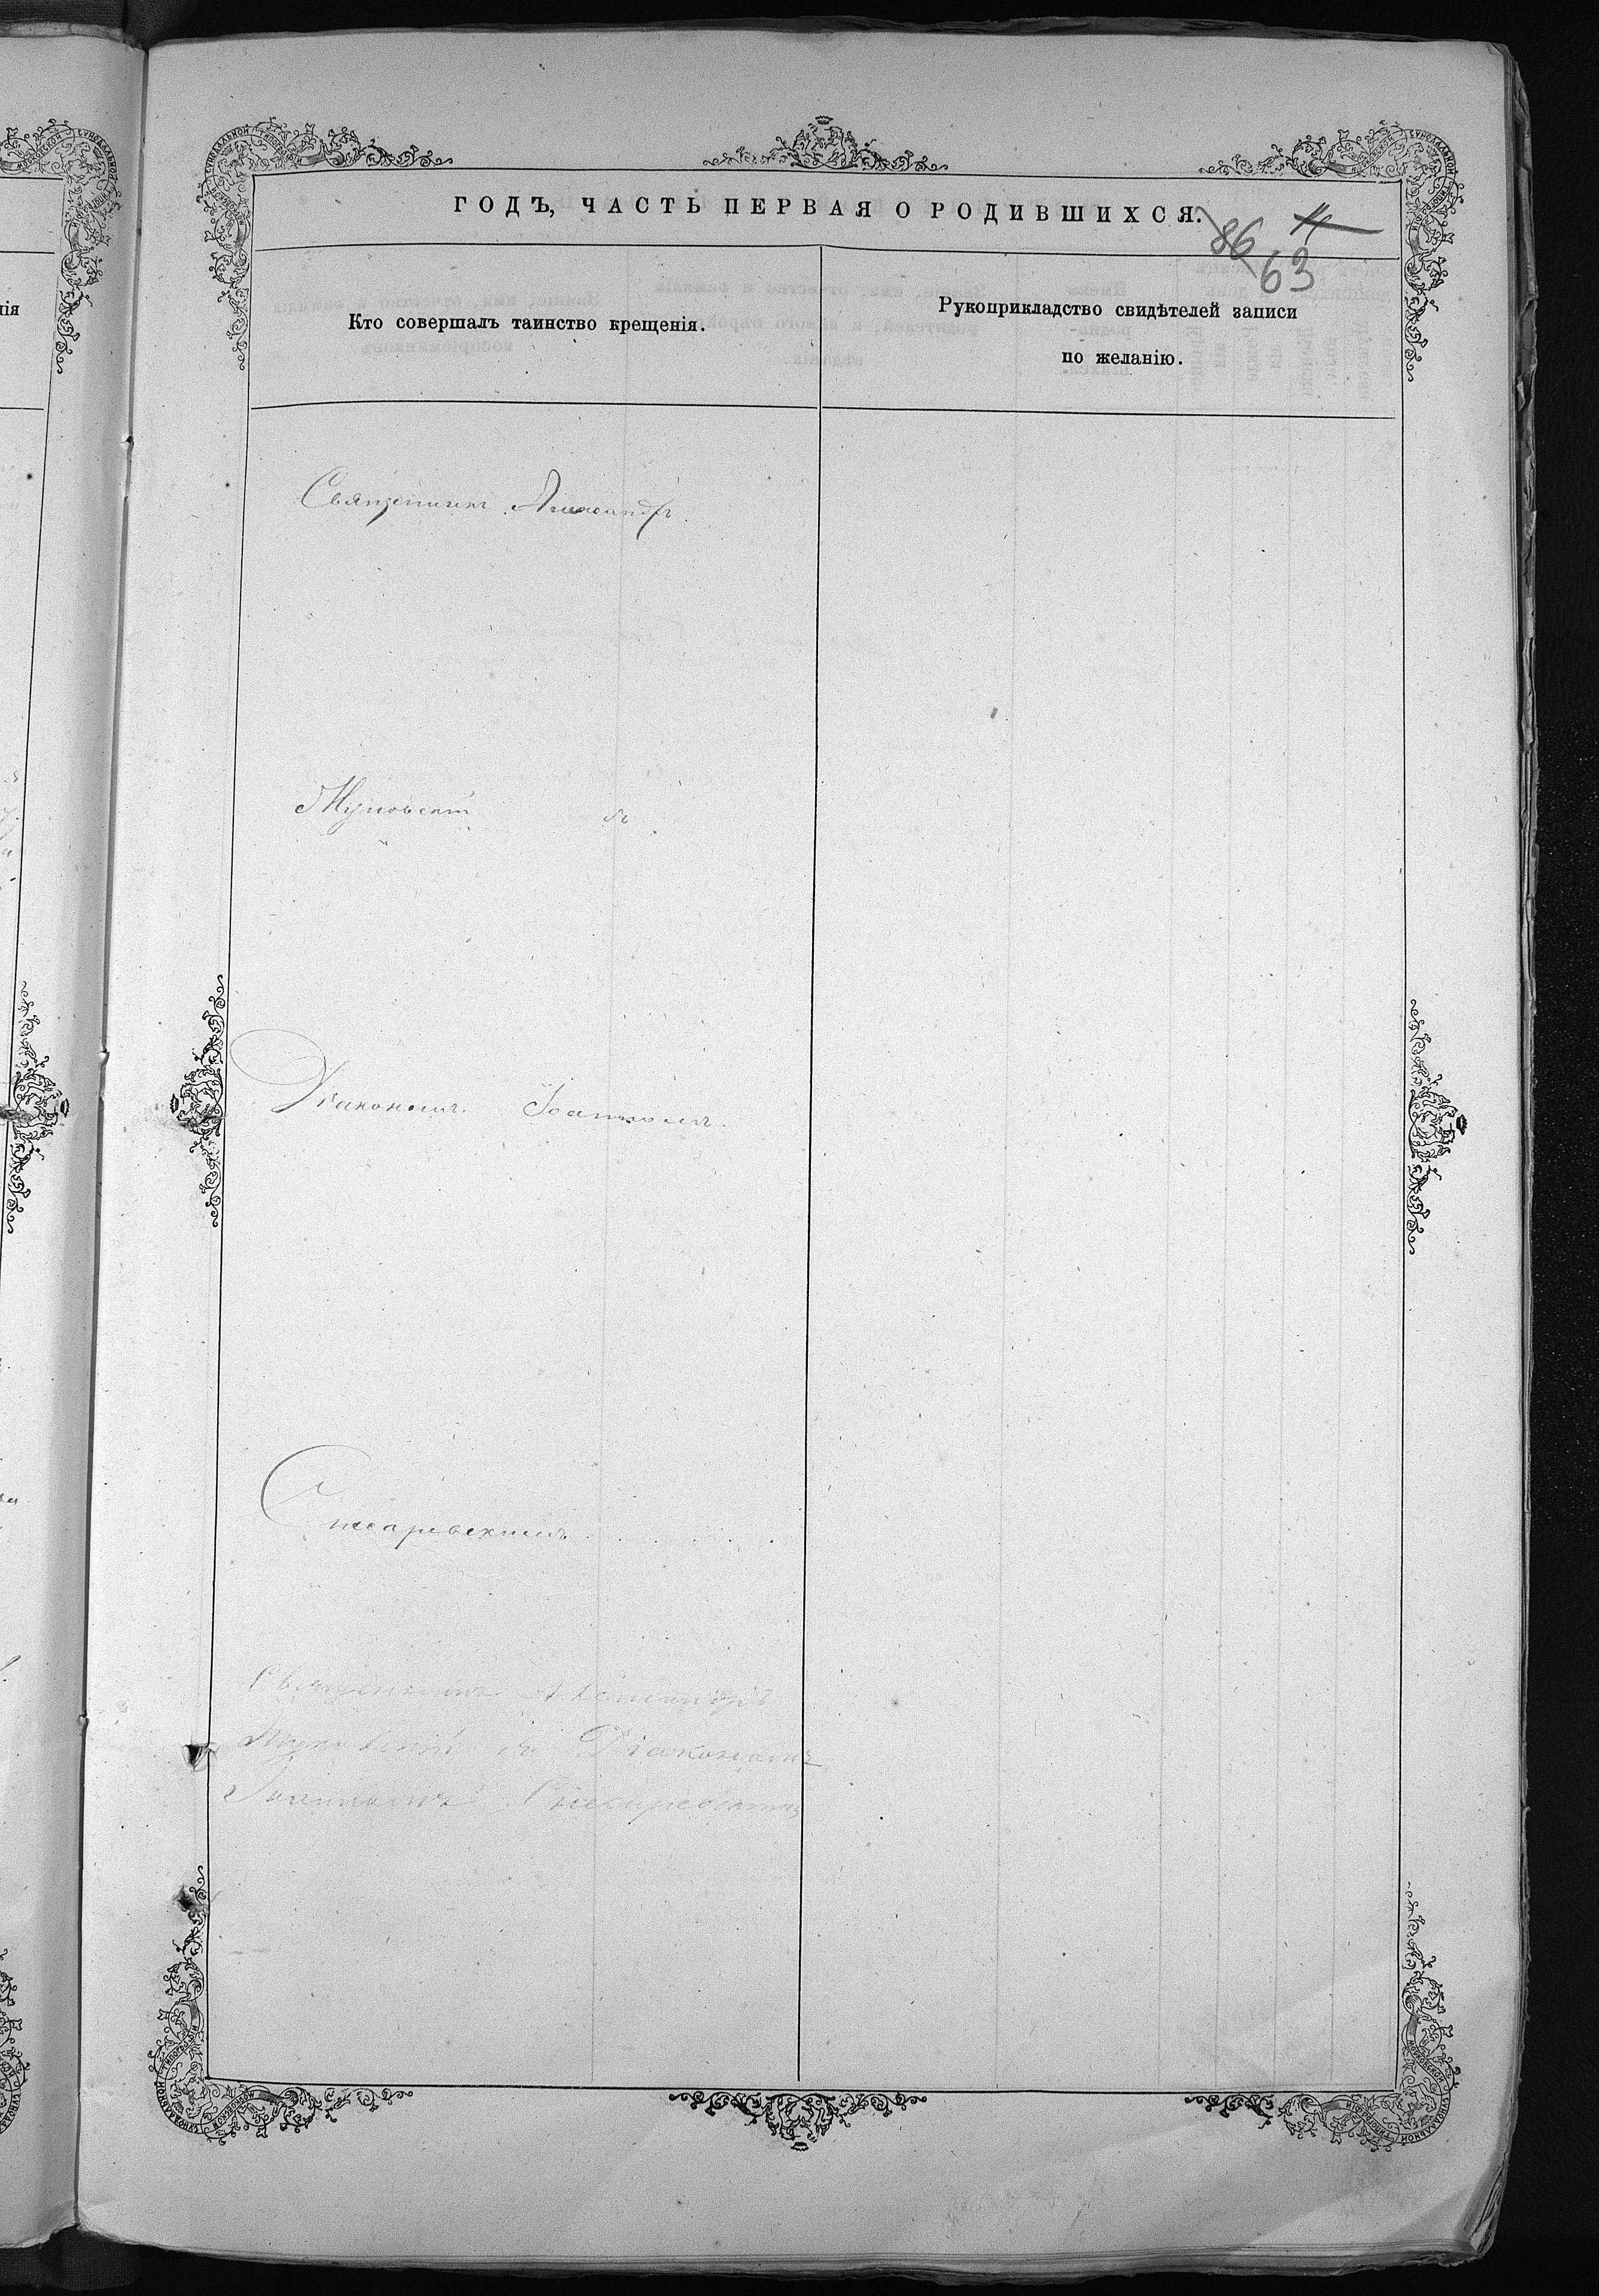 ГОДЪ, ЧАСТЬ ПЕРВАЯ О РОДИВШИХСЯ.
86
63
Кто совершалъ таинство крещенія.
Рукоприкладство свидѣтелей записи
по желанію.
Священникъ Александръ
Жуковскій съ
Діакономъ Іоанномъ
Священникъ Александръ
Жуковскій съ Діакономъ
Іоанномъ